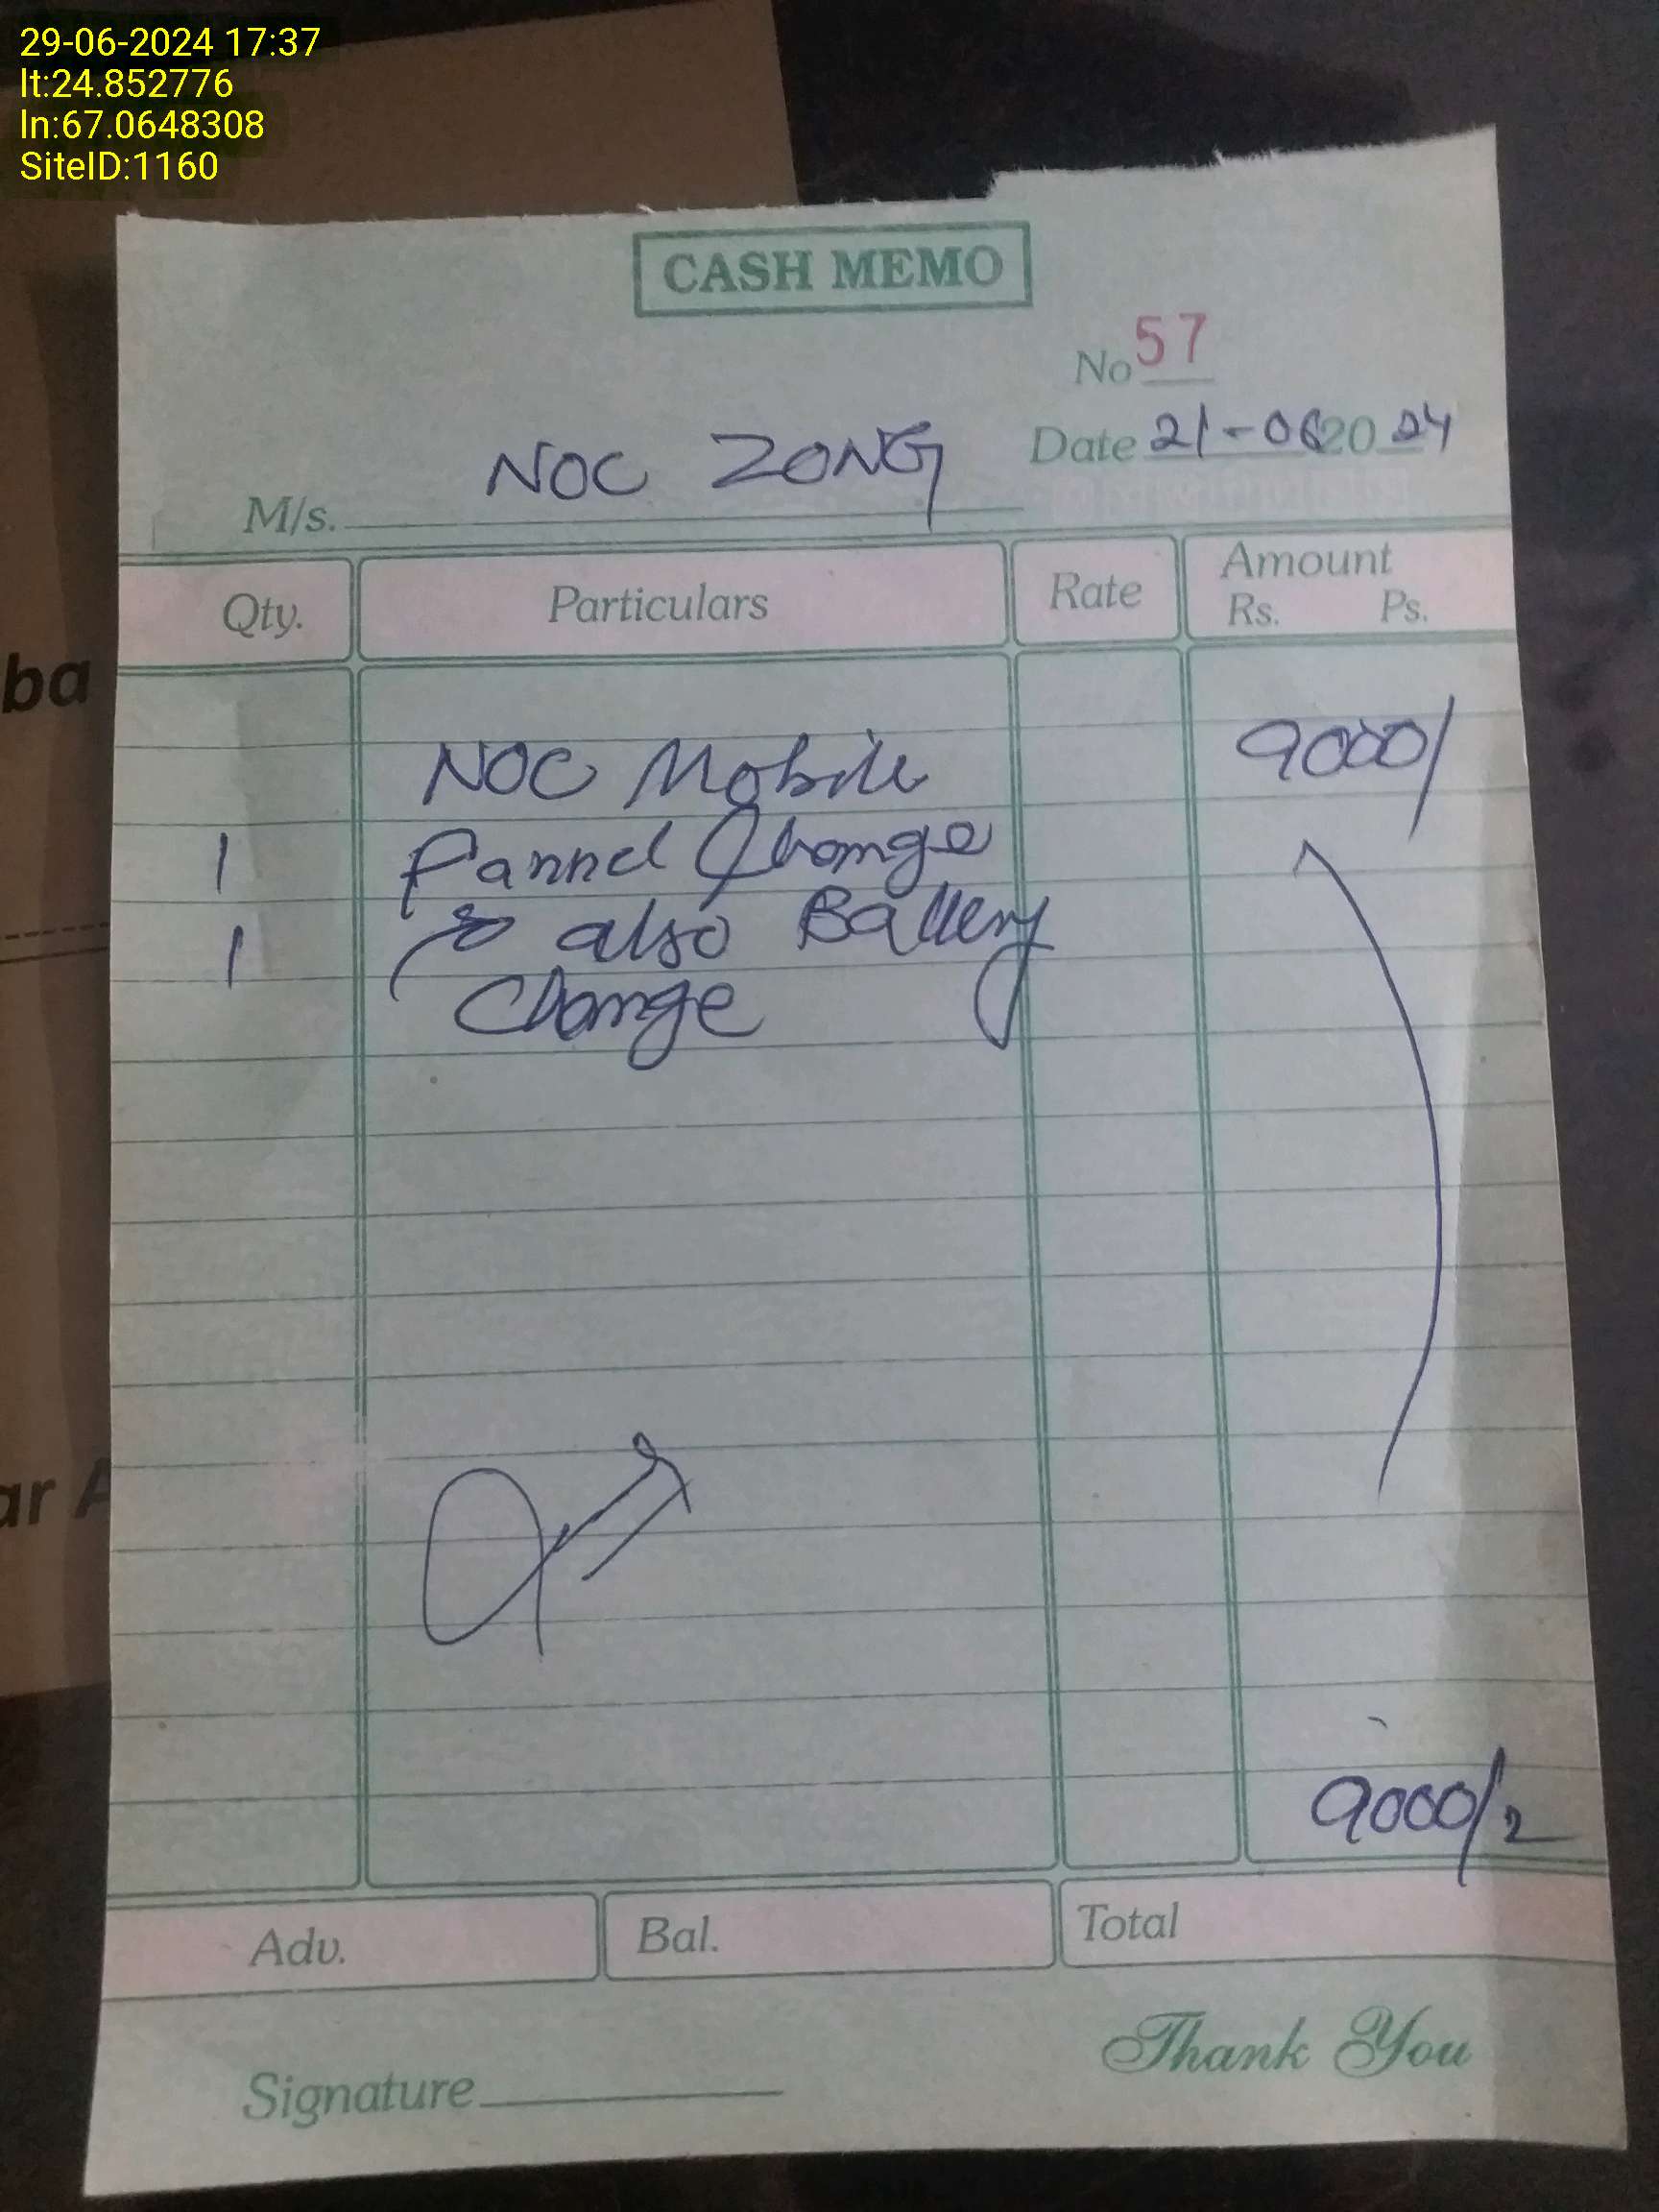 29-06-2024 17:37
lt:24.852776
ln:67.0648308
SiteID:1160
CASH MEMO
No 57
Date 21-06 2024
M/s. NOC ZONG
Qty. Particulars Rate Amount
Rs. Ps.
NOC Mobile 9000/
1 Pannel Change
1 & also Battery
Change
9000/2
Adv. Bal. Total
Thank You
Signature
ba
ar A